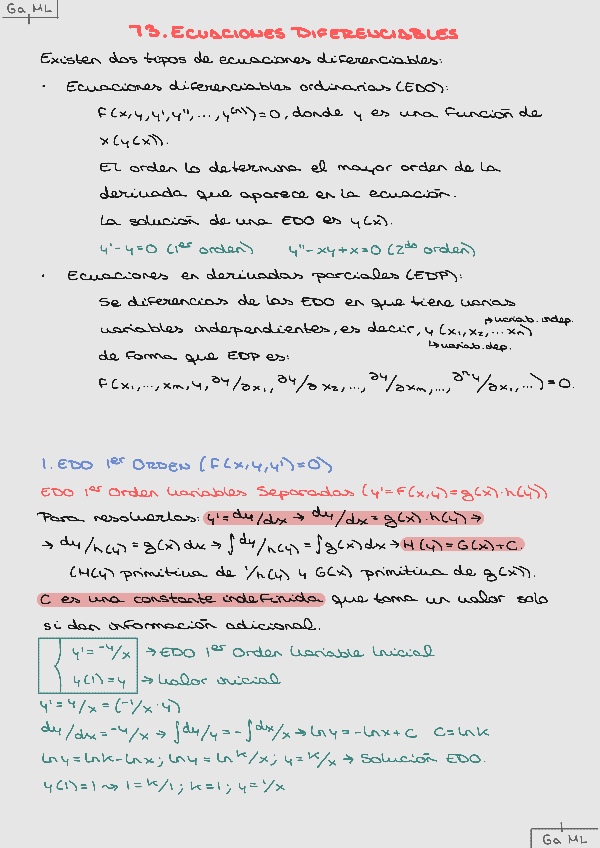 Ga ML
73. ECUACIONES DIFERENCIABLES
Existen dos tipos de ecuaciones diferenciables:
· Ecuaciones diferenciables ordinarias (EDO):
F(x,y,y',y'',...,y⁽ⁿ⁾)=0, donde y es una función de
x (y(x)).
El orden lo determina el mayor orden de la
derivada que aparece en la ecuación.
La solución de una EDO es y(x).
y'-y=0 (1er orden) y''-xy+x=0 (2do orden)
· Ecuaciones en derivadas parciales (EDP):
Se diferencias de las EDO en que tiene varias
→variab. indep.
variables independientes, es decir, y (x₁,x₂,...xₘ)
↳variab. dep.
de forma que EDP es:
F(x₁,...,xₘ,y,∂y/∂x₁,∂y/∂x₂,...,∂y/∂xₘ,...,∂ⁿy/∂x₁,...)=0.
1. EDO 1er ORDEN (F(x,y,y')=0)
EDO 1er Orden Variables Separadas (y'=F(x,y)=g(x)·h(y))
Para resolverlas: y'=dy/dx → dy/dx=g(x)·h(y)→
→ dy/h(y)=g(x)dx → ∫dy/h(y)=∫g(x)dx → H(y)=G(x)+C.
(H(y) primitiva de 1/h(y) y G(x) primitiva de g(x)).
C es una constante indefinida que toma un valor solo
si dan información adicional.
y'=-y/x → EDO 1er Orden Variable Inicial
y(1)=y → Valor inicial
y'=y/x=(-1/x·y)
dy/dx=-y/x → ∫dy/y=-∫dx/x → lny=-lnx+C C=lnk
lny=lnk-lnx; lny=ln k/x; y=k/x → Solución EDO.
y(1)=1 ⇝ 1=k/1; k=1; y=1/x
Ga ML